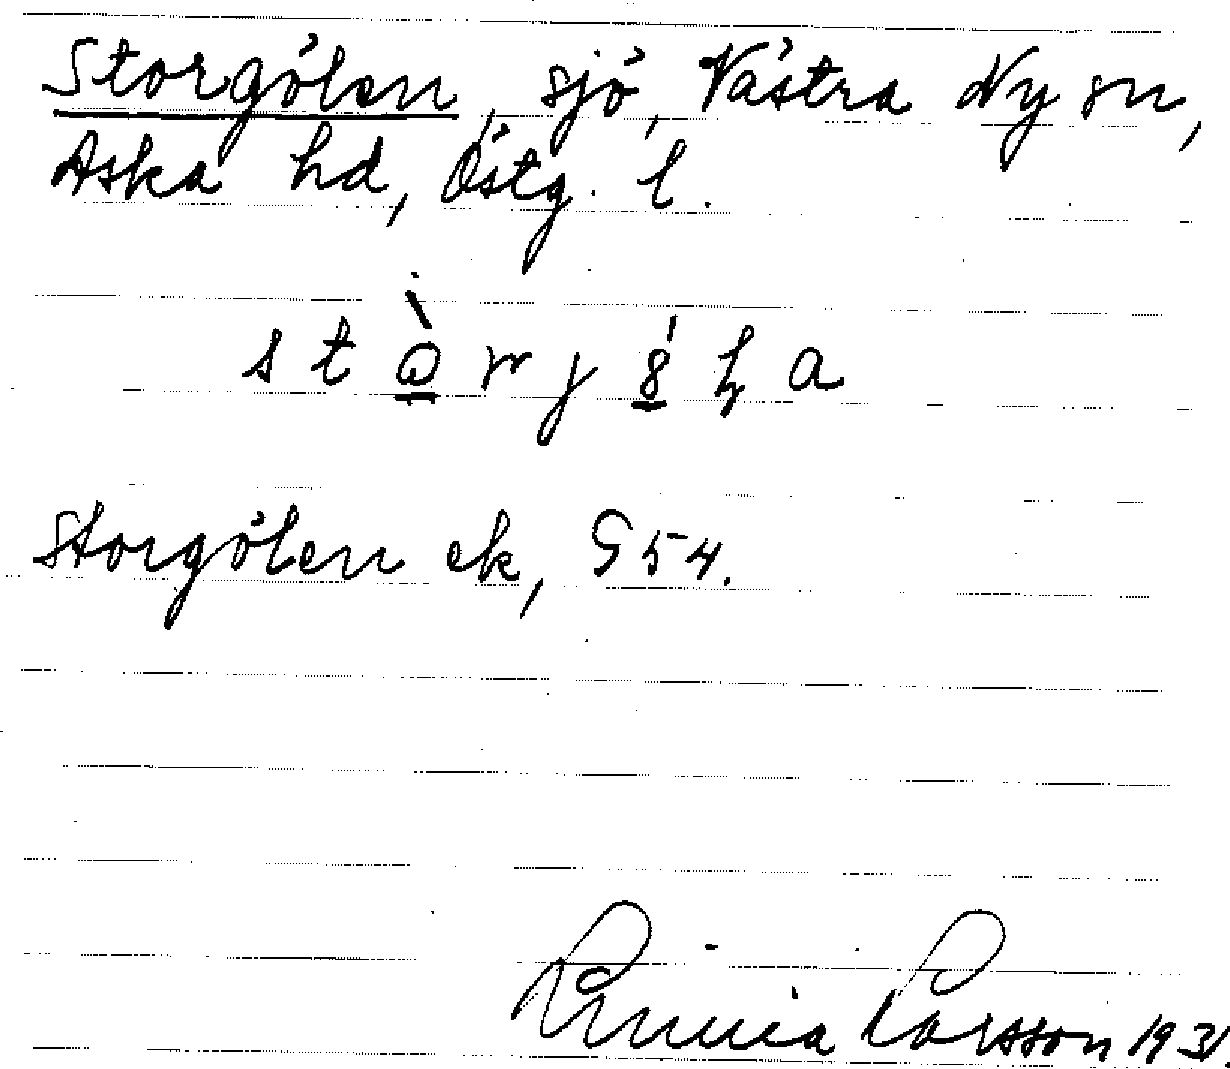 Storgölen, sjö, Västra Ny sn,
Aska hd, Östg. l.
Storgölen ek, G 54.
Linnea Larsson 1931.